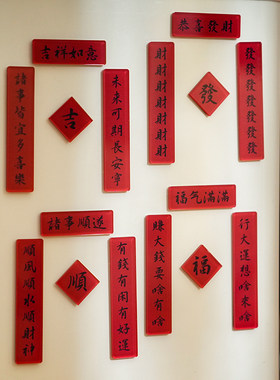 吉祥如意
諸事皆宜多喜樂
吉
未來可期長安寧
恭喜發財
財財財財財財財
發
發發發發發發發
諸事順遂
順風順水順財神
順
有錢有閑有好運
福气滿滿
賺大錢要啥有啥
福
行大運想啥來啥